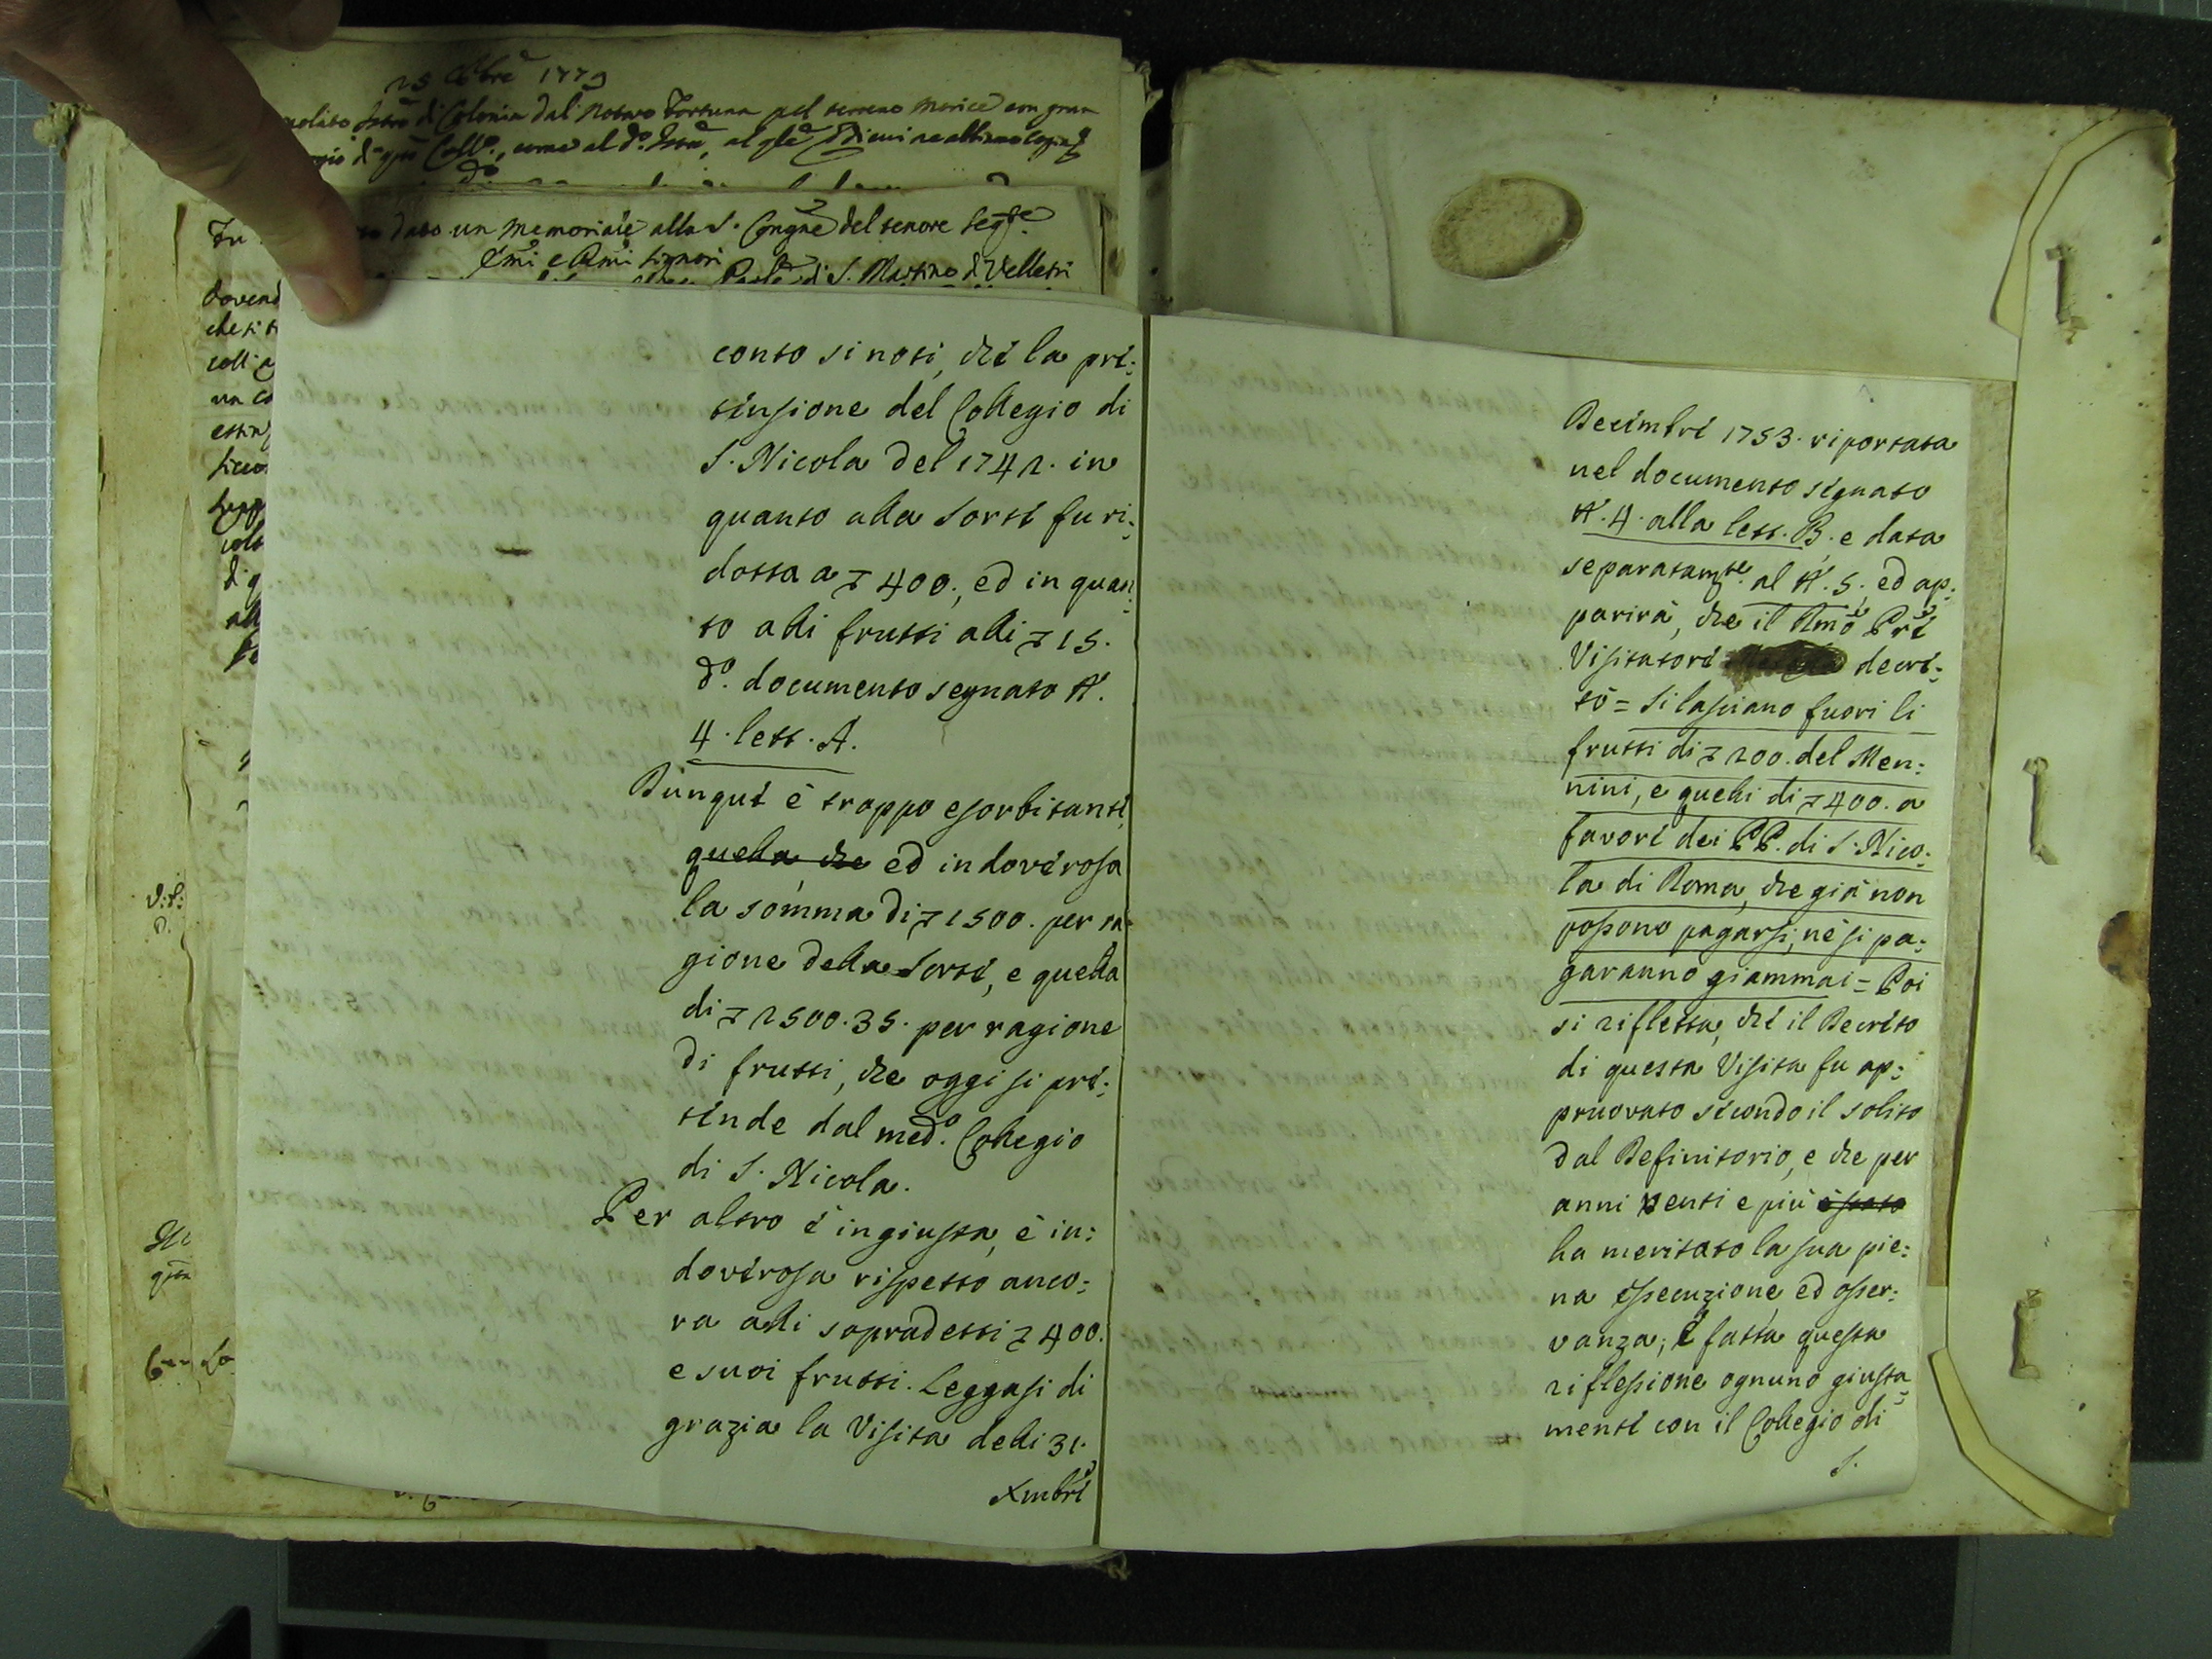 25 Xbre 1779
di Colonia dal Notaro Fortuna pel terreno Morice con gran
come al d.º
dato un Memoriale alla S. Congne del tenore segte
Emi e Rmi Signori
di S. Martino di Velletri
conto si noti, che la pre:
tensione del Collegio di
S. Nicola del 1742. in
quanto alla Sorte fu ri:
dotta a 400., ed in quan:
to alli frutti alli 15.
d.º documento segnato N.
4. lett. A.
Dunque è troppo esorbitante,
quella, che ed indoverosa
la somma di 1500. per ra-
gione della Sorte, e quella
di 2500.35. per ragione
di frutti, che oggi si pre:
tende dal med.º Collegio
di S. Nicola.
Per altro è ingiusta, è in:
doverosa rispetto anco:
ra alli sopradetti 400.
e suoi frutti. Leggasi di
grazia la Visita delli 31.
Xmbre
Decembre 1753. riportata
nel documento segnato
N. 4. alla lett. B. e data
separatamte. al N. 5., ed ap:
parirà, che il Rmo Pre
Visitatore decre:
tò = Si lasciano fuori li
frutti di 200. del Men:
nini, e quelli di 400. a
favore dei PP. di S. Nico:
la di Roma, che già non
possono pagarsi, nè si pa:
garanno giammai = Poi
si rifletta, che il Decreto
di questa Visita fu ap:
pruovato secondo il solito
dal Definitorio, e che per
anni venti e più
ha meritato la sua pie:
na essecuzione, ed osser:
vanza; E fatta questa
riflessione ognuno giusta:
mente con il Collegio di
S.